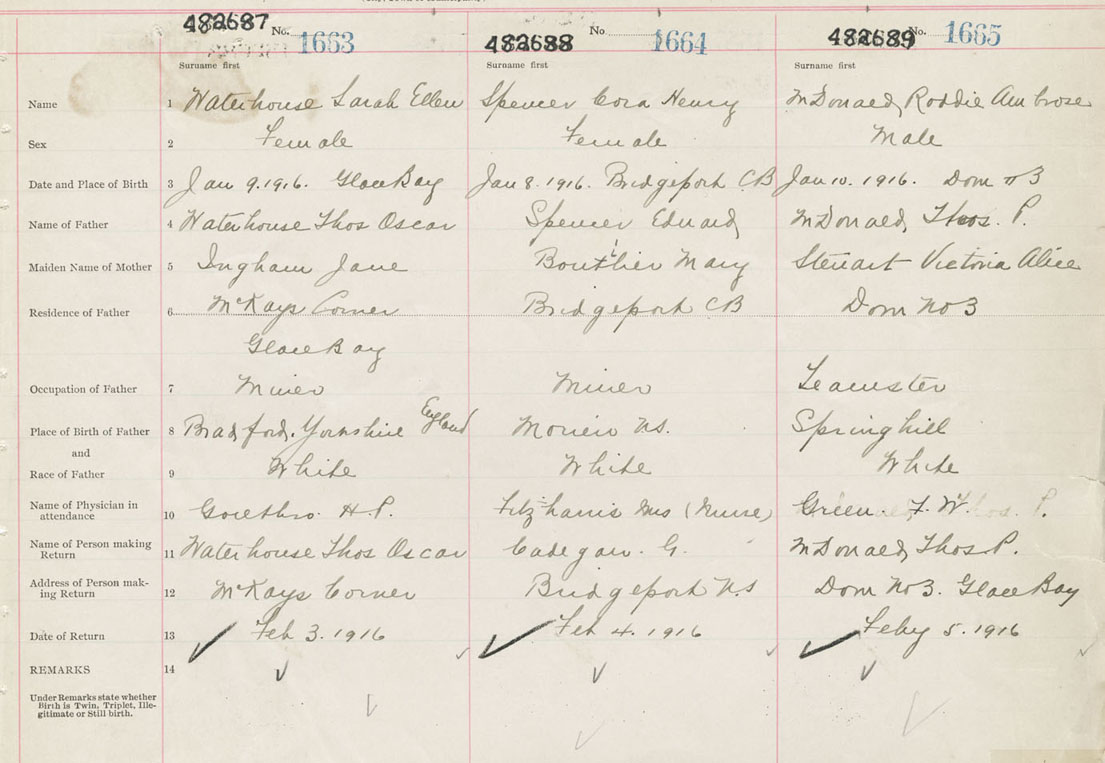 482687 No. 1663 482688 No. 1664 482689 No. 1665
Surname first Surname first Surname first
Name 1 Waterhouse Sarah Ellen Spencer Cora Henry McDonald, Roddie Ambrose
Sex 2 Female Female Male
Date and Place of Birth 3 Jan 9. 1916. Glace Bay Jan 8. 1916. Bridgeport CB Jan 10. 1916. Dom No 3
Name of Father 4 Waterhouse Thos Oscar Spencer Edward McDonald, Thos. P.
Maiden Name of Mother 5 Ingham Jane Boutlier Mary Stewart Victoria Alice
Residence of Father 6 McKays Corner Bridgeport CB Dom No 3
Glace Bay
Occupation of Father 7 Miner Miner Teamster
Place of Birth of Father 8 Bradford. Yorkshire England Morien NS. Springhill
and
Race of Father 9 White White White
Name of Physician in
attendance 10 H. P. Fitzharris Mrs (Nurse) Green F. W.
Name of Person making
Return 11 Waterhouse Thos Oscar Cadegan. G. McDonald, Thos P.
Address of Person mak-
ing Return 12 McKays Corner Bridgeport N.S Dom No 3. Glace Bay
Date of Return 13 Feb 3. 1916 Feb 4. 1916 Feby 5. 1916
REMARKS 14
Under Remarks state whether
Birth is Twin, Triplet, Ille-
gitimate or Still birth.